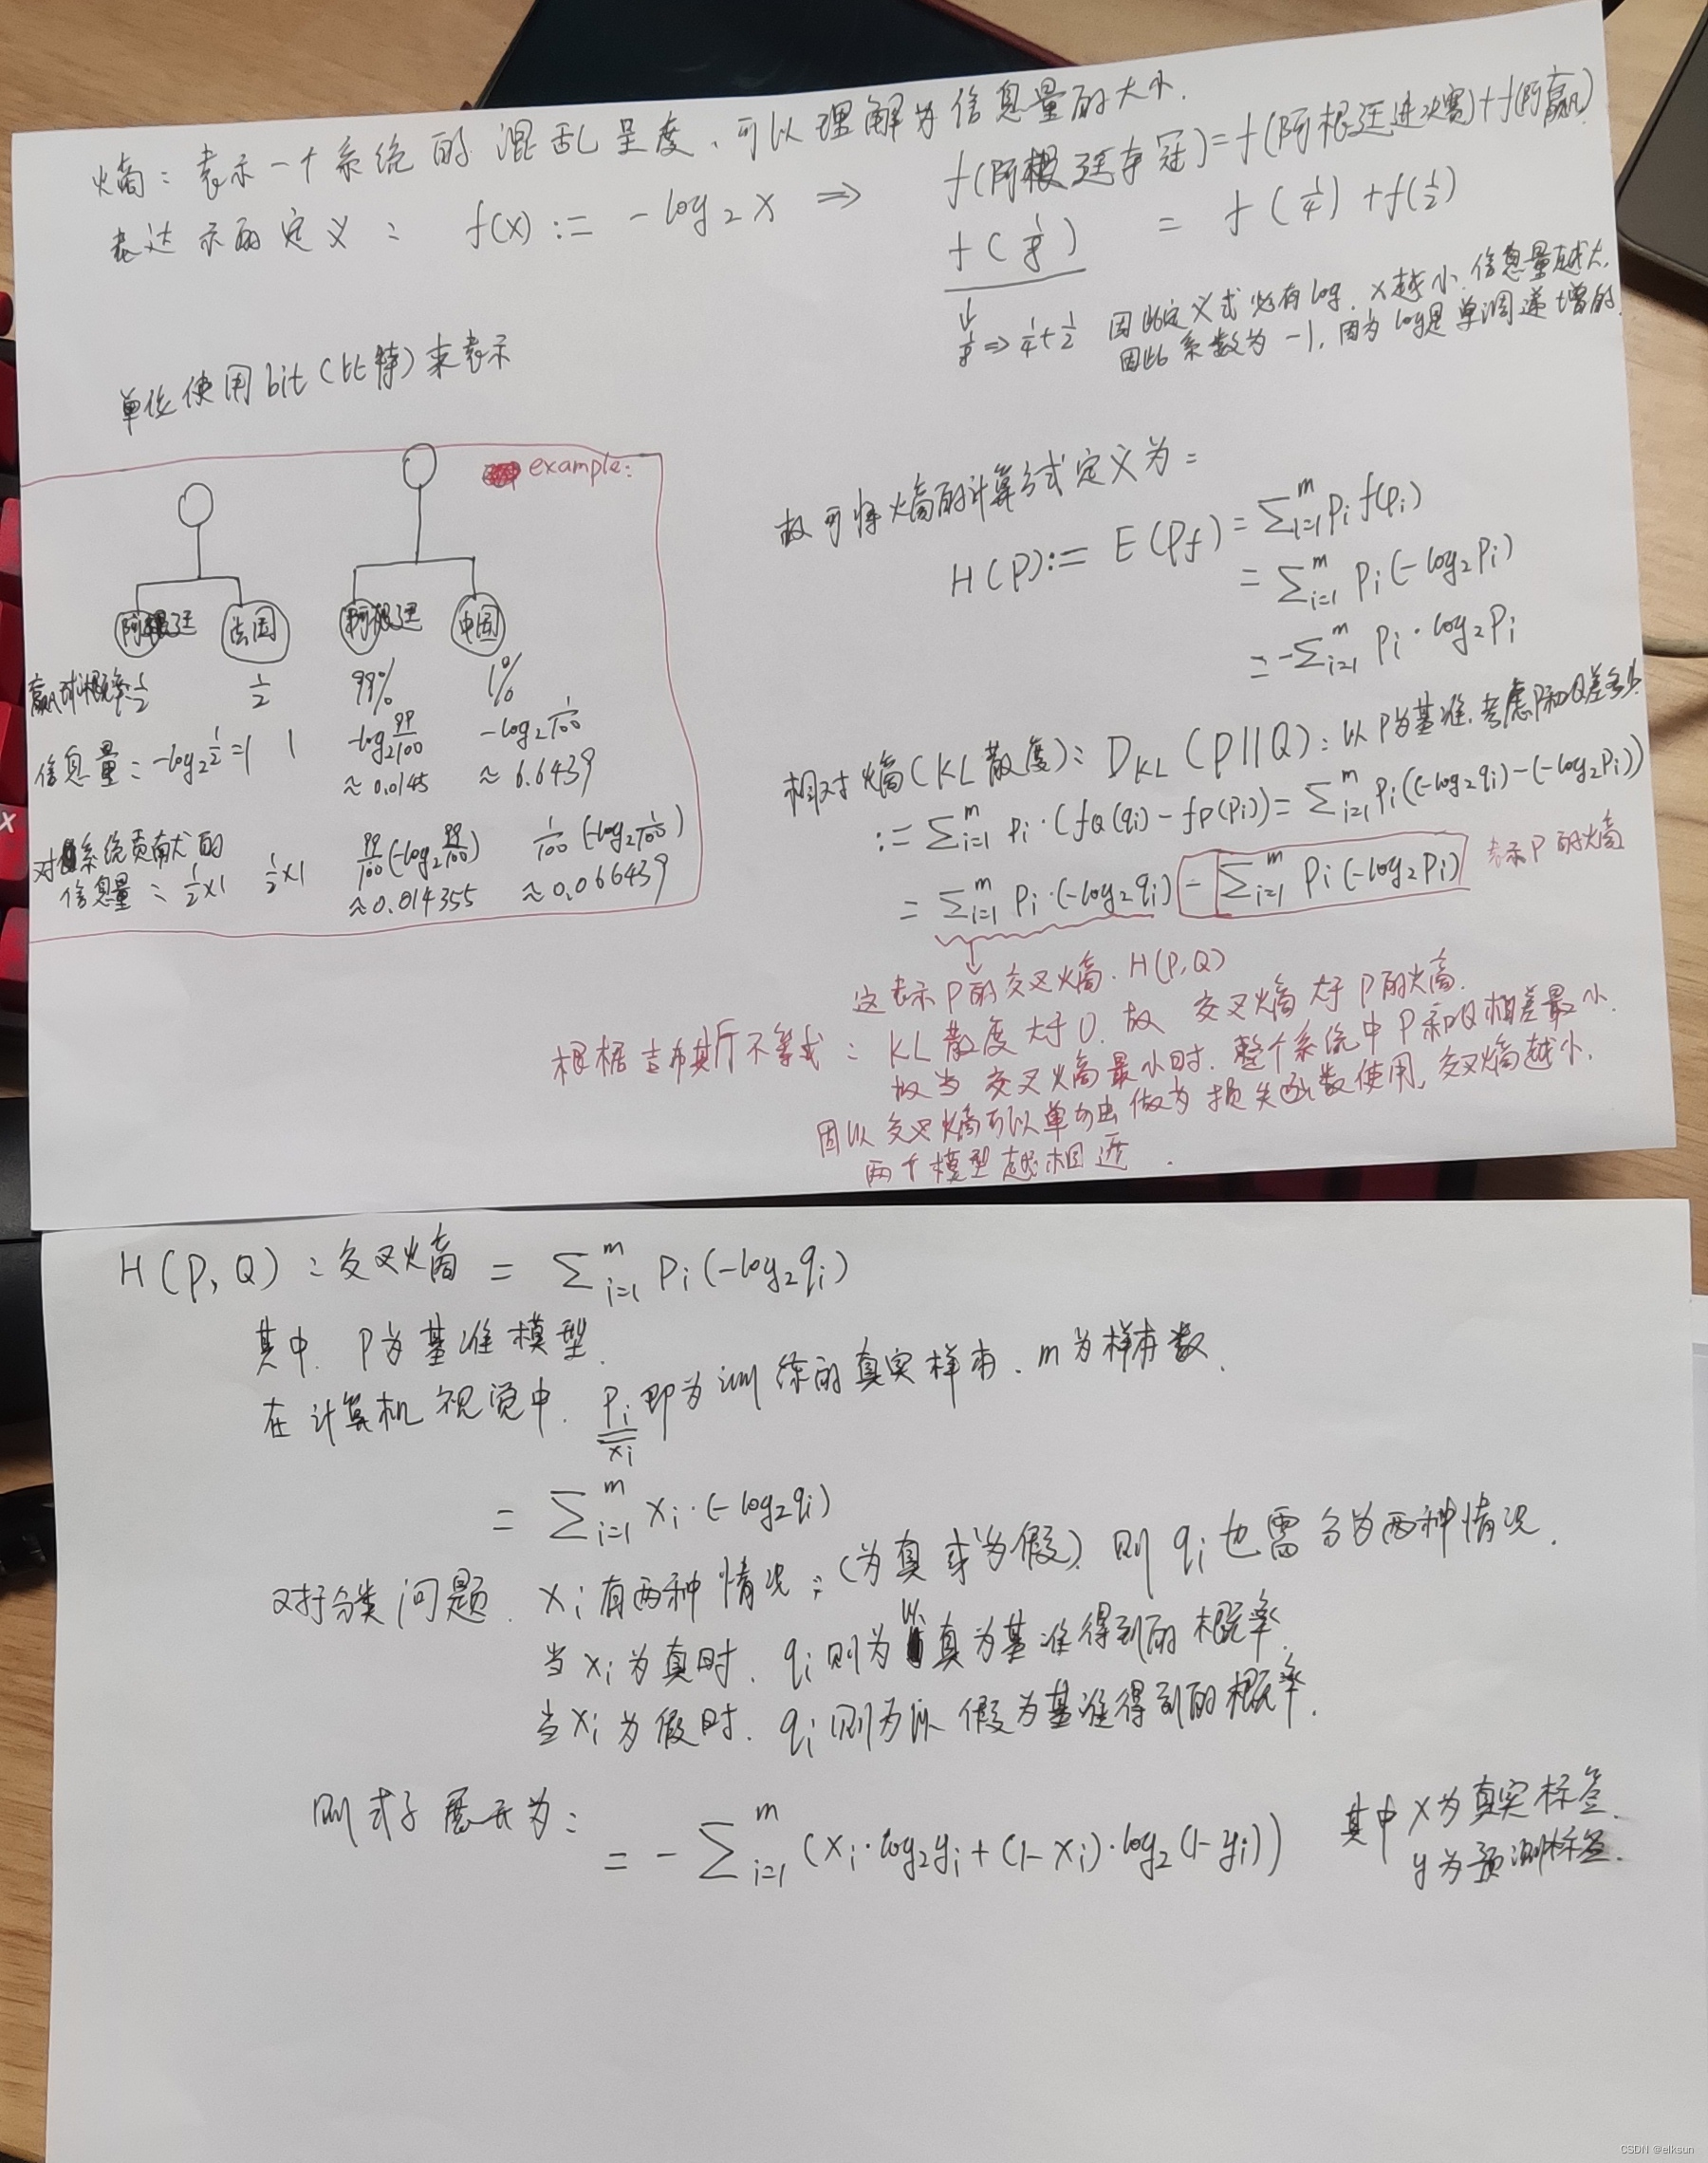 熵：表示一个系统的混乱呈度，可以理解为信息量的大小.
表达示的定义： f(x) := -log₂x ⇒
f(阿根廷夺冠)=f(阿根廷进决赛)+f(阿赢)
f(1/8) = f(1/4)+f(1/2)
↓
1/8 ⇒ 1/4+1/2
因此定义式必有log. x越小.信息量越大.
因此系数为-1.因为log是单调递增的.
单位使用bit(比特)来表示
example:
阿根廷 法国 阿根廷 中国
赢球概率:1/2 1/2 99% 1%
信息量：-log₂1/2=1 1 -log₂99/100 -log₂1/100
≈0.0145 ≈6.6439
对系统贡献的
信息量：1/2×1 1/2×1 99/100(-log₂99/100) 1/100(-log₂1/100)
≈0.014355 ≈0.066439
故可将熵的计算方式定义为：
H(P):= E(Pf) = Σᵢ₌₁ᵐ pᵢf(pᵢ)
= Σᵢ₌₁ᵐ pᵢ(-log₂pᵢ)
= -Σᵢ₌₁ᵐ pᵢ·log₂pᵢ
相对熵(KL散度)：D_KL(P||Q)：以P为基准.考虑P和Q差多少
:= Σᵢ₌₁ᵐ pᵢ·(f_Q(qᵢ)-f_P(pᵢ)) = Σᵢ₌₁ᵐ pᵢ((-log₂qᵢ)-(-log₂pᵢ))
= Σᵢ₌₁ᵐ pᵢ·(-log₂qᵢ) - Σᵢ₌₁ᵐ pᵢ(-log₂pᵢ) 表示P的熵
↓
这表示P的交叉熵.H(P,Q)
根据吉布斯不等式：KL散度大于0.故 交叉熵大于P的熵.
故当交叉熵最小时.整个系统中P和Q相差最小.
因以交叉熵可以单独做为损失函数使用,交叉熵越小.
两个模型越相近.
H(P,Q)：交叉熵 = Σᵢ₌₁ᵐ pᵢ(-log₂qᵢ)
其中.P为基准模型.
在计算机视觉中.pᵢ即为训练的真实样本.m为样本数.
xᵢ
= Σᵢ₌₁ᵐ xᵢ·(-log₂qᵢ)
对于分类问题.xᵢ有两种情况：(为真或为假).则qᵢ也需分为两种情况.
当xᵢ为真时.qᵢ则为以真为基准得到的概率.
当xᵢ为假时.qᵢ则为以假为基准得到的概率.
则式子展开为：
= -Σᵢ₌₁ᵐ (xᵢ·log₂yᵢ+(1-xᵢ)·log₂(1-yᵢ))
其中x为真实标签.
y为预测标签.
CSDN @elksun